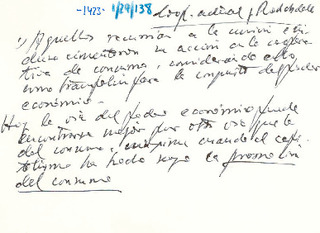 -1423- 1/29/138
Coop. actual y Rochdale
1) Aquellos recurrían a la unión
cimentaron su acción en la coopera
tiva de consumo, considerando ello
como trampolín para la conquista del poder
económico.
Hoy la vía del poder económico puede
encontrarse mejor por otra vía que la
del consumo, cuando el capi
talismo ha hecho suya la promoción
del consumo